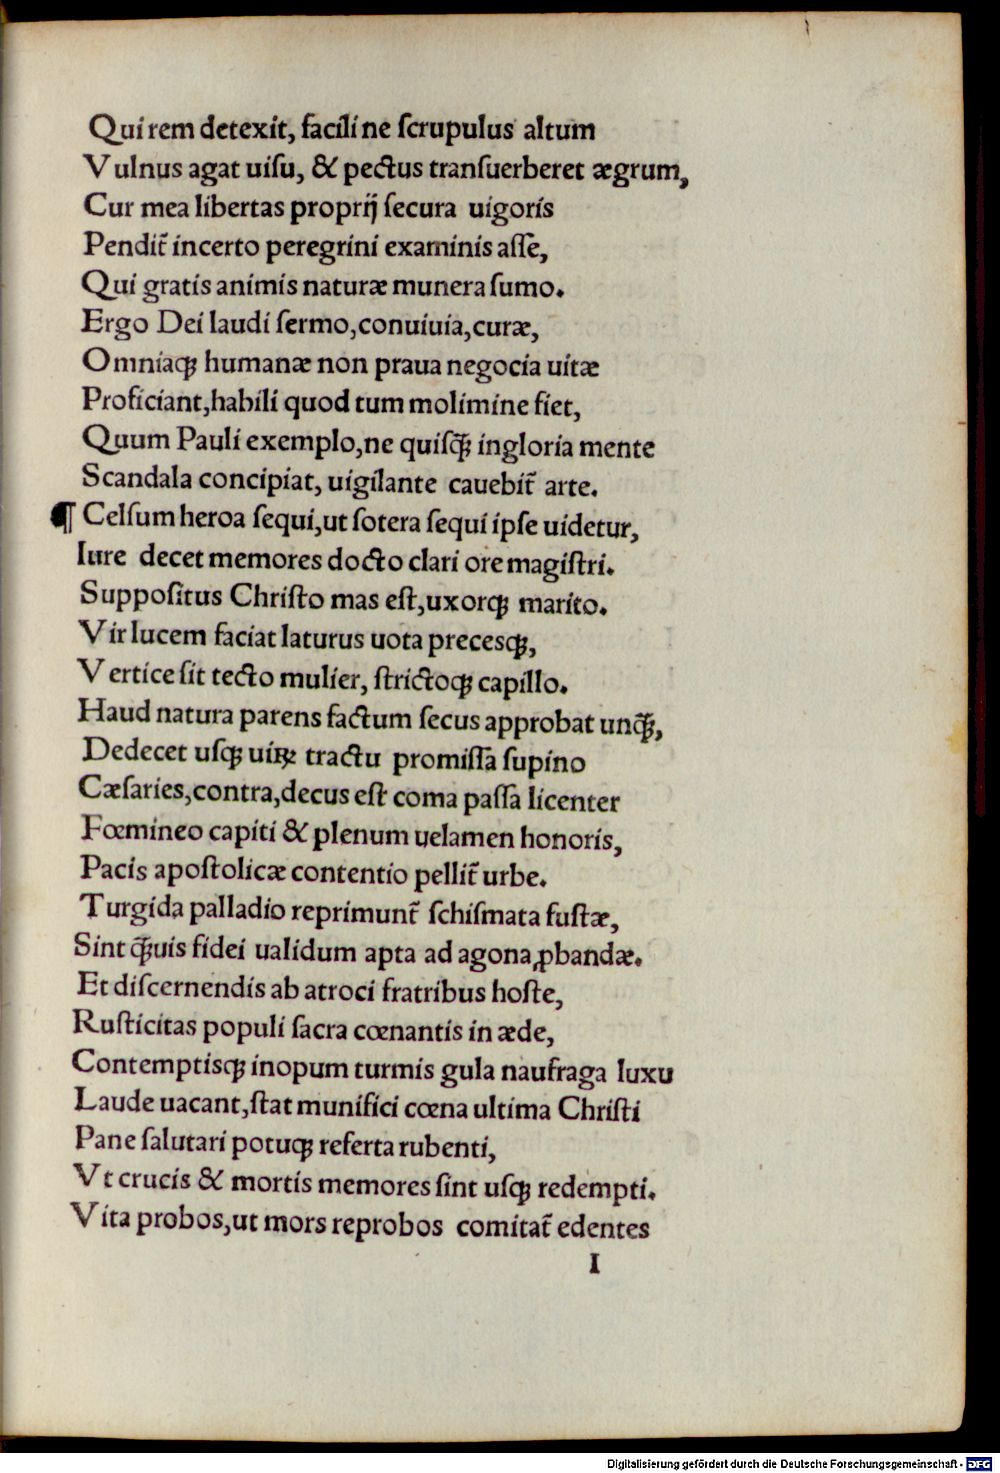 Qui rem detexit, facili ne ſcrupulus altum
Vulnus agat uiſu, & pectus tranſuerberet ægrum,
Cur mea libertas proprij ſecura uigoris
Pendit̃ incerto peregrini examinis aſſe,
Qui gratis animis naturæ munera ſumo.
Ergo Dei laudi ſermo,conuiuia,curæ,
Omniaqꝫ humanæ non praua negocia uitæ
Proficiant,habili quod tum molimine fiet,
Quum Pauli exemplo,ne quiſq̃ꝫ ingloria mente
Scandala concipiat, uigilante cauebit̃ arte.
¶ Celſum heroa ſequi,ut ſotera ſequi ipſe uidetur,
Iure decet memores docto clari ore magiſtri.
Suppoſitus Chriſto mas eſt,uxorqꝫ marito.
Vir lucem faciat laturus uota precesqꝫ,
Vertice ſit tecto mulier, ſtrictoqꝫ capillo.
Haud natura parens factum ſecus approbat unq̃ꝫ,
Dedecet uſqꝫ uiꝝ tractu promiſſa ſupino
Cæſaries,contra,decus eſt coma paſſa licenter
Fœmineo capiti & plenum uelamen honoris,
Pacis apoſtolicæ contentio pellit̃ urbe.
Turgida palladio reprimunt̃ ſchiſmata fuſtæ,
Sint q̃ꝫuis fidei ualidum apta ad agona ꝓbandæ.
Et diſcernendis ab atroci fratribus hoſte,
Ruſticitas populi ſacra cœnantis in æde,
Contemptisqꝫ inopum turmis gula naufraga luxu
Laude uacant,ſtat munifici cœna ultima Chriſti
Pane ſalutari potuqꝫ referta rubenti,
Vt crucis & mortis memores ſint uſqꝫ redempti.
Vita probos,ut mors reprobos comitat̃ edentes
I
Digitalisierung gefördert durch die Deutsche Forschungsgemeinschaft - DFG